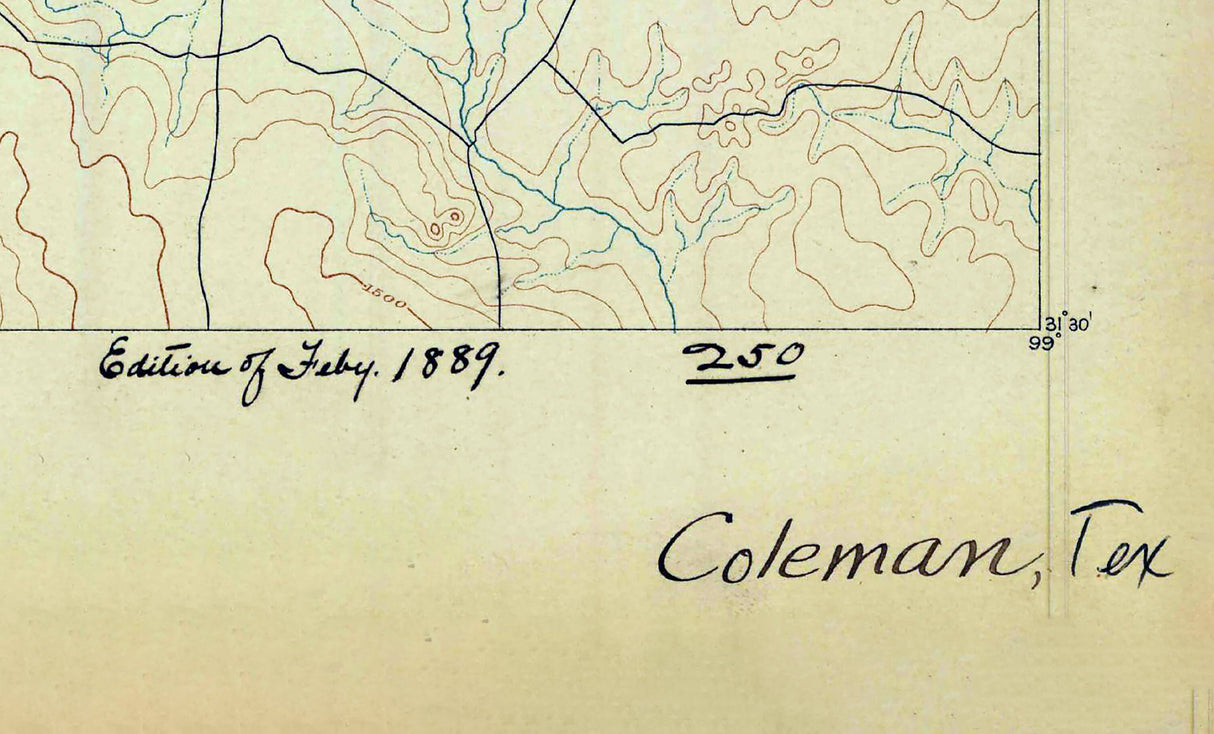 1500
31°30'
99°
Edition of Feby. 1889.
250
Coleman, Tex